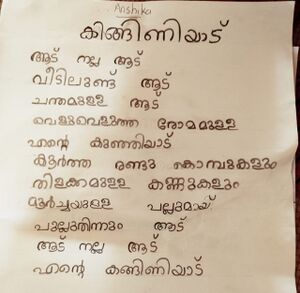 Anshika
കിങ്ങിണിയാട്
ആട് നല്ല ആട്
വീടിലുണ്ട് ആട്
ചന്തമുള്ള ആട്
വെളുവെളുത്ത രോമമുള്ള
എന്റെ കുഞ്ഞിയാട്
കൂർത്ത രണ്ടു കൊമ്പുകളും
തിളക്കമുള്ള കണ്ണുകളും
മൂർച്ചയുള്ള പല്ലുമായ്
പുല്ലുതിന്നും ആട്
ആട് നല്ല ആട്
എന്റെ കങ്ങിണിയാട്